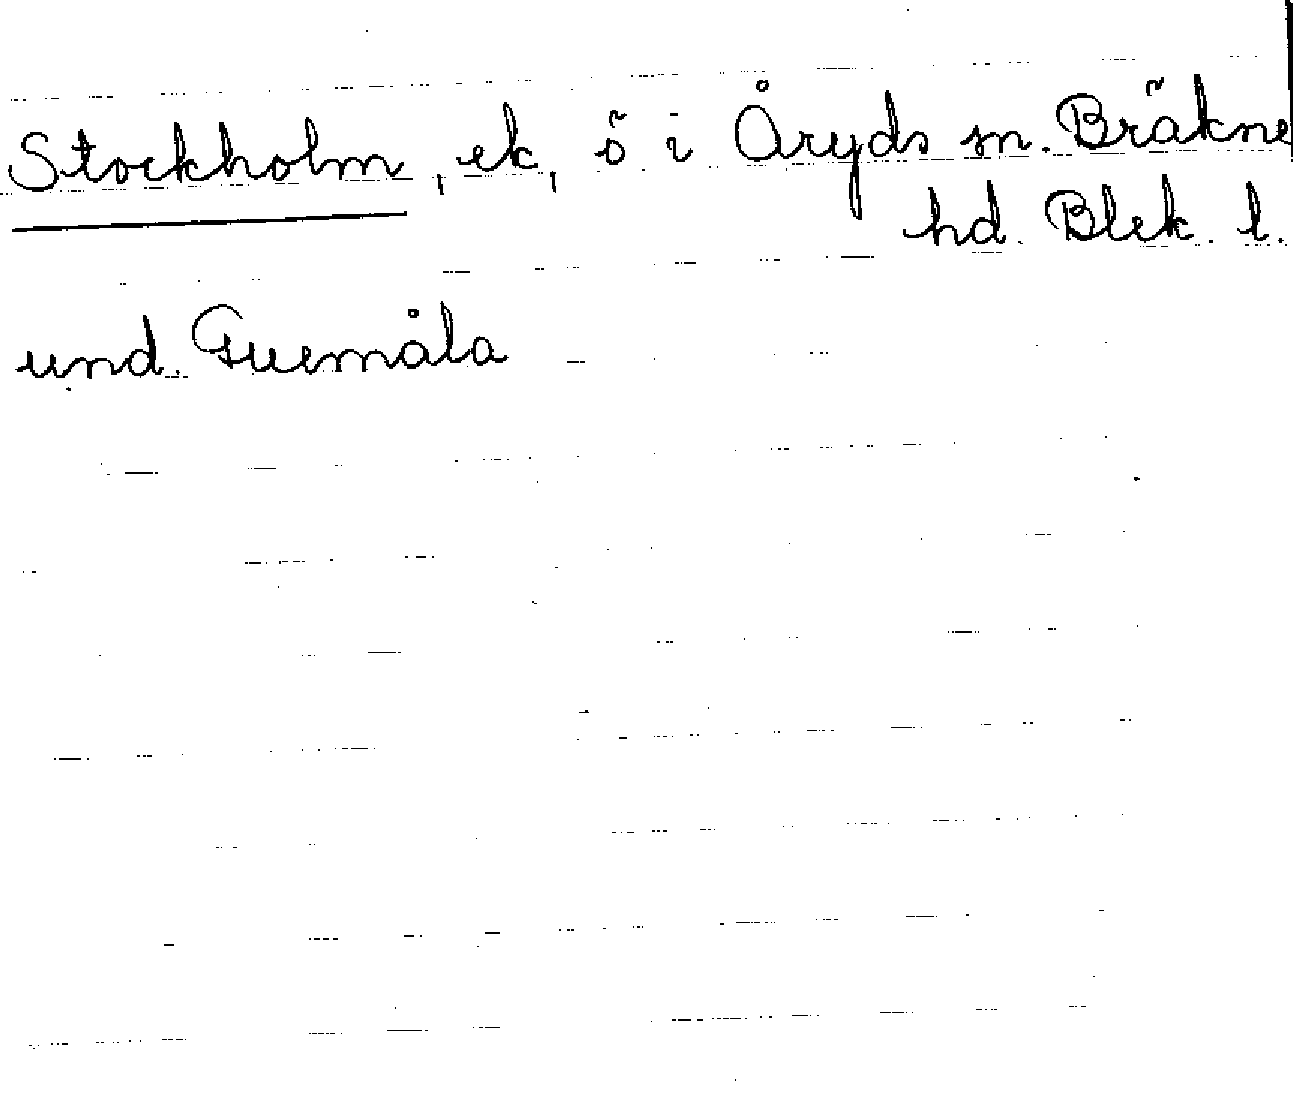 Stockholm, ek, ö i Åryds sn. Bräkne
hd. Blek. l.
und. Guemåla